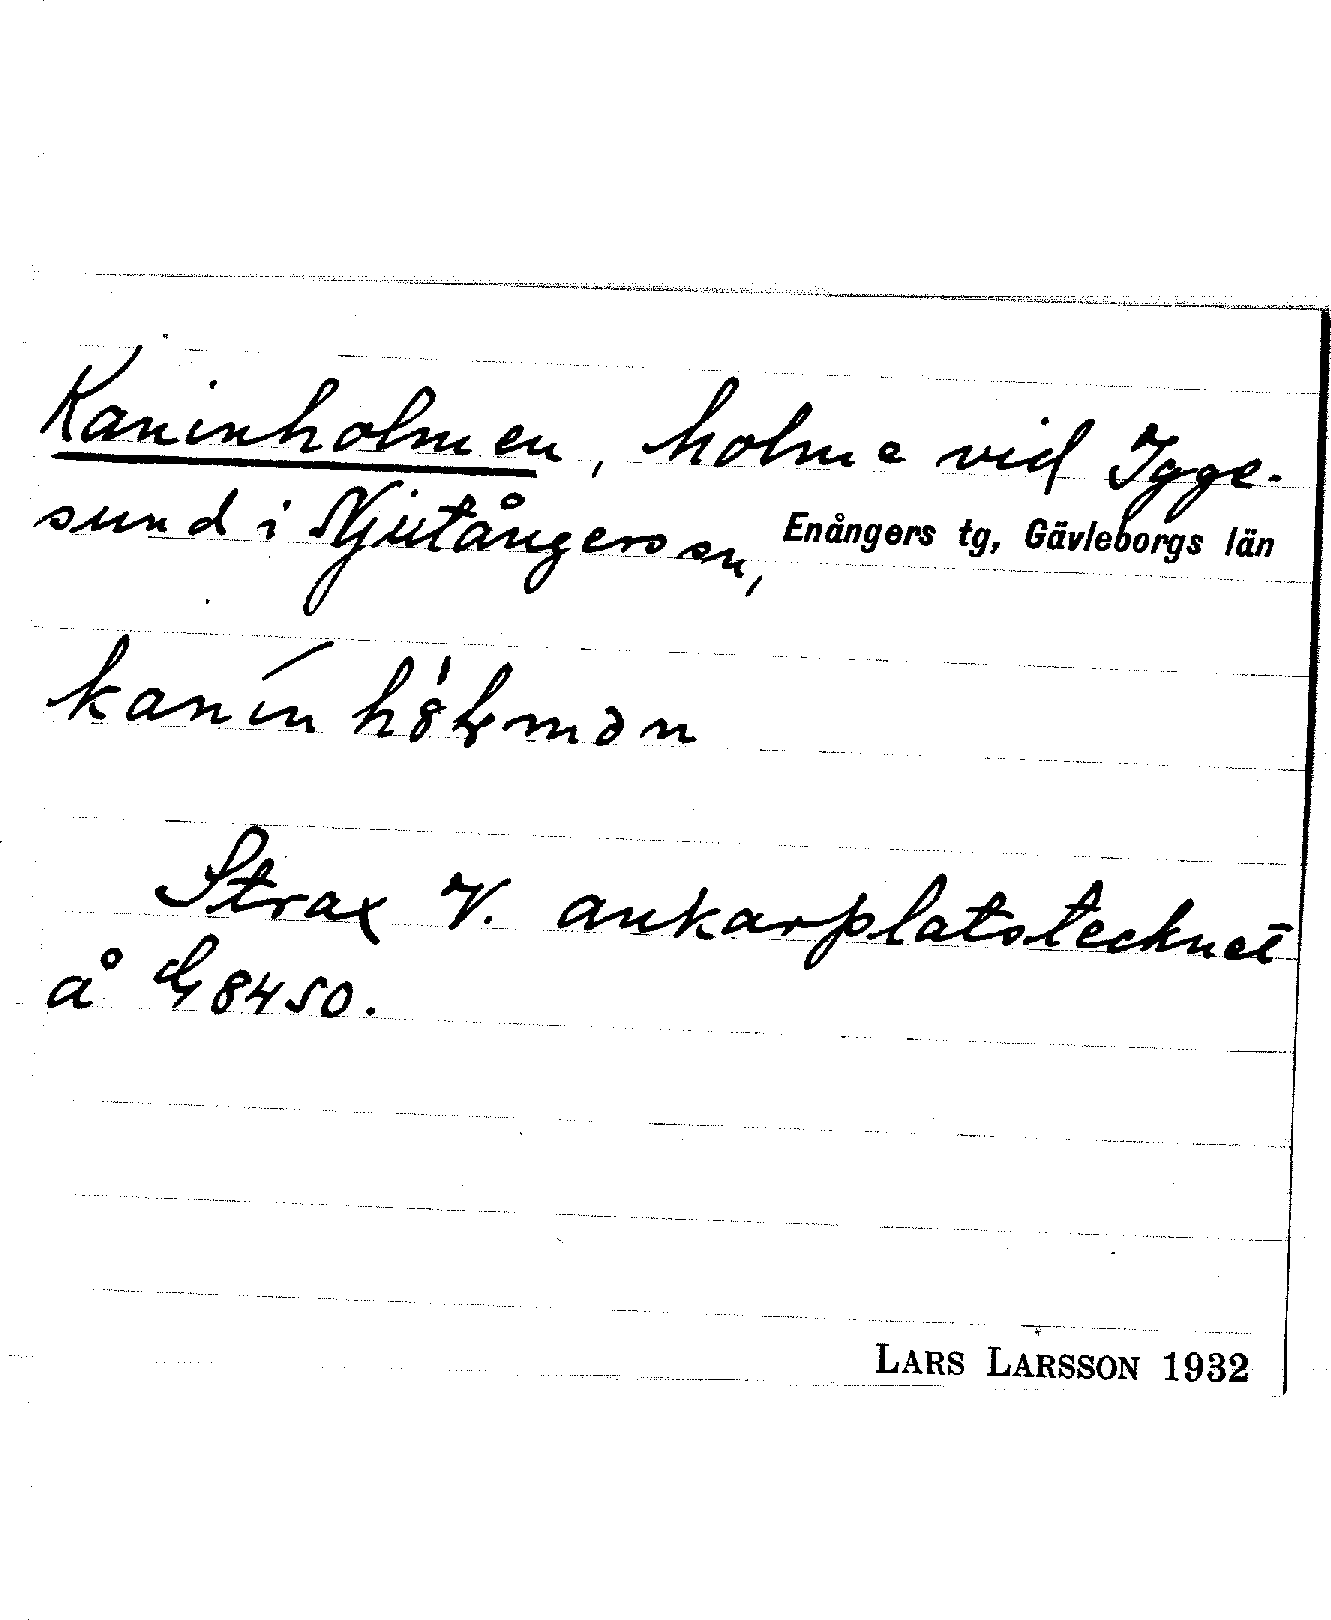 Kaninholmen, holme vid Igge-
sund i Njutångers sn, Enångers tg, Gävleborgs län
Strax V. ankarplatstecknet
å 8450.
LARS LARSSON 1932